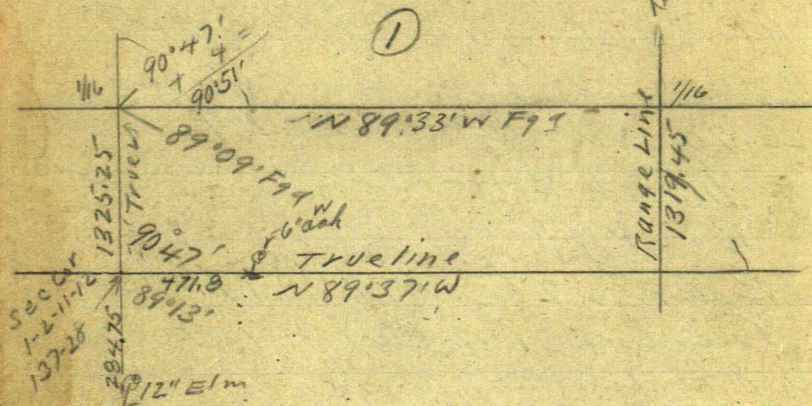 1
90°47'
+ 4 =
90°51'
1/16
1/16
N 89°33' W Fgg
89°09' Fgg W
1325.25
True
Range Line
1319.45
90°47'
6" oak
True line
471.8
N 89°37' W
89°13'
Sec Cor
1-2-11-12
137-28
284.75
12" Elm